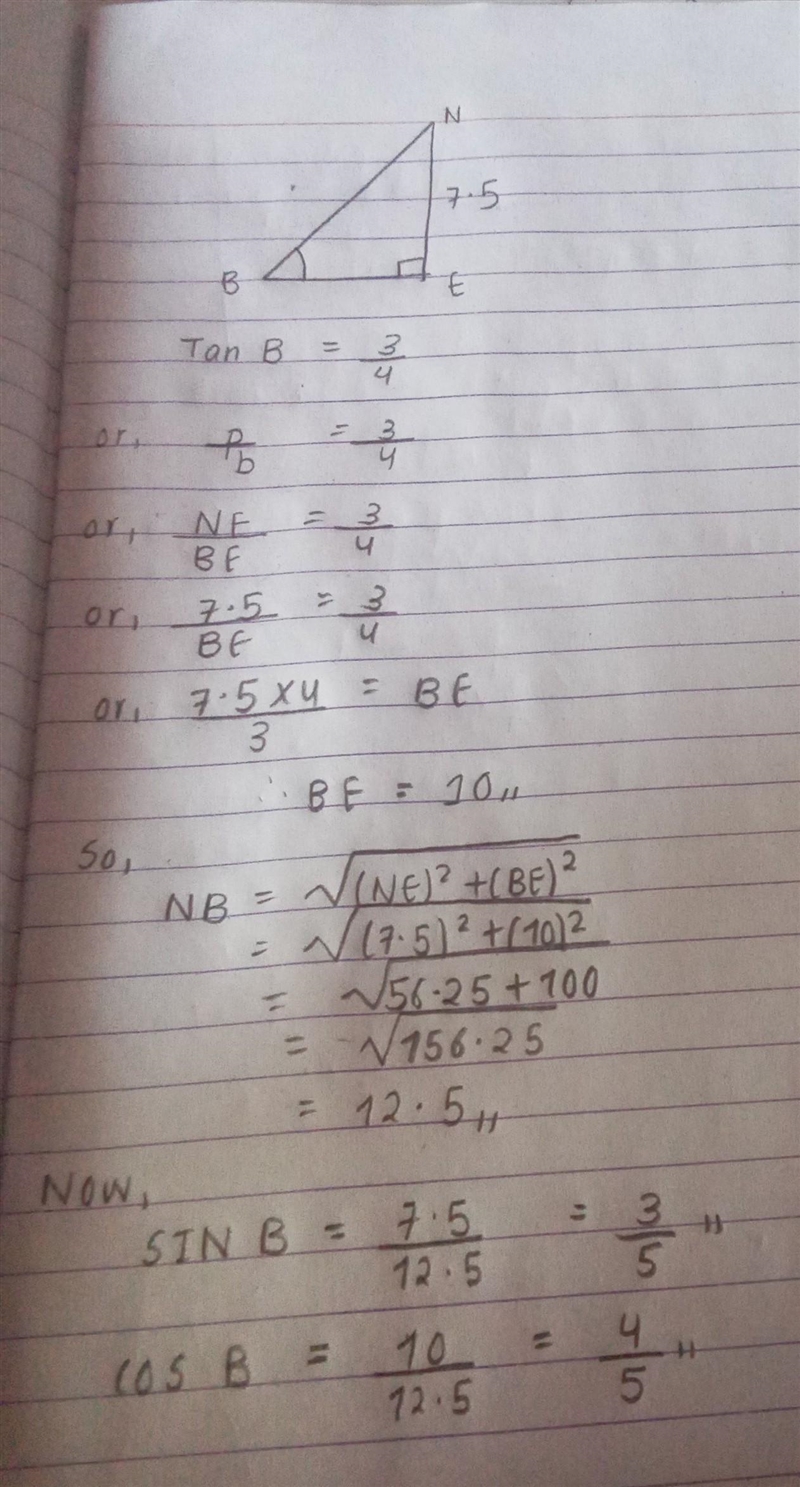 N
7.5
B
E
Tan B = 3/4
or, p/b = 3/4
or, NE/BE = 3/4
or, 7.5/BE = 3/4
or, 7.5×4/3 = BE
∴ BE = 10,,
So,
NB = √(NE)² + (BE)²
= √(7.5)² + (10)²
= √56.25 + 100
= √156.25
= 12.5,,
NOW,
SIN B = 7.5/12.5 = 3/5 ,,
COS B = 10/12.5 = 4/5 ,,